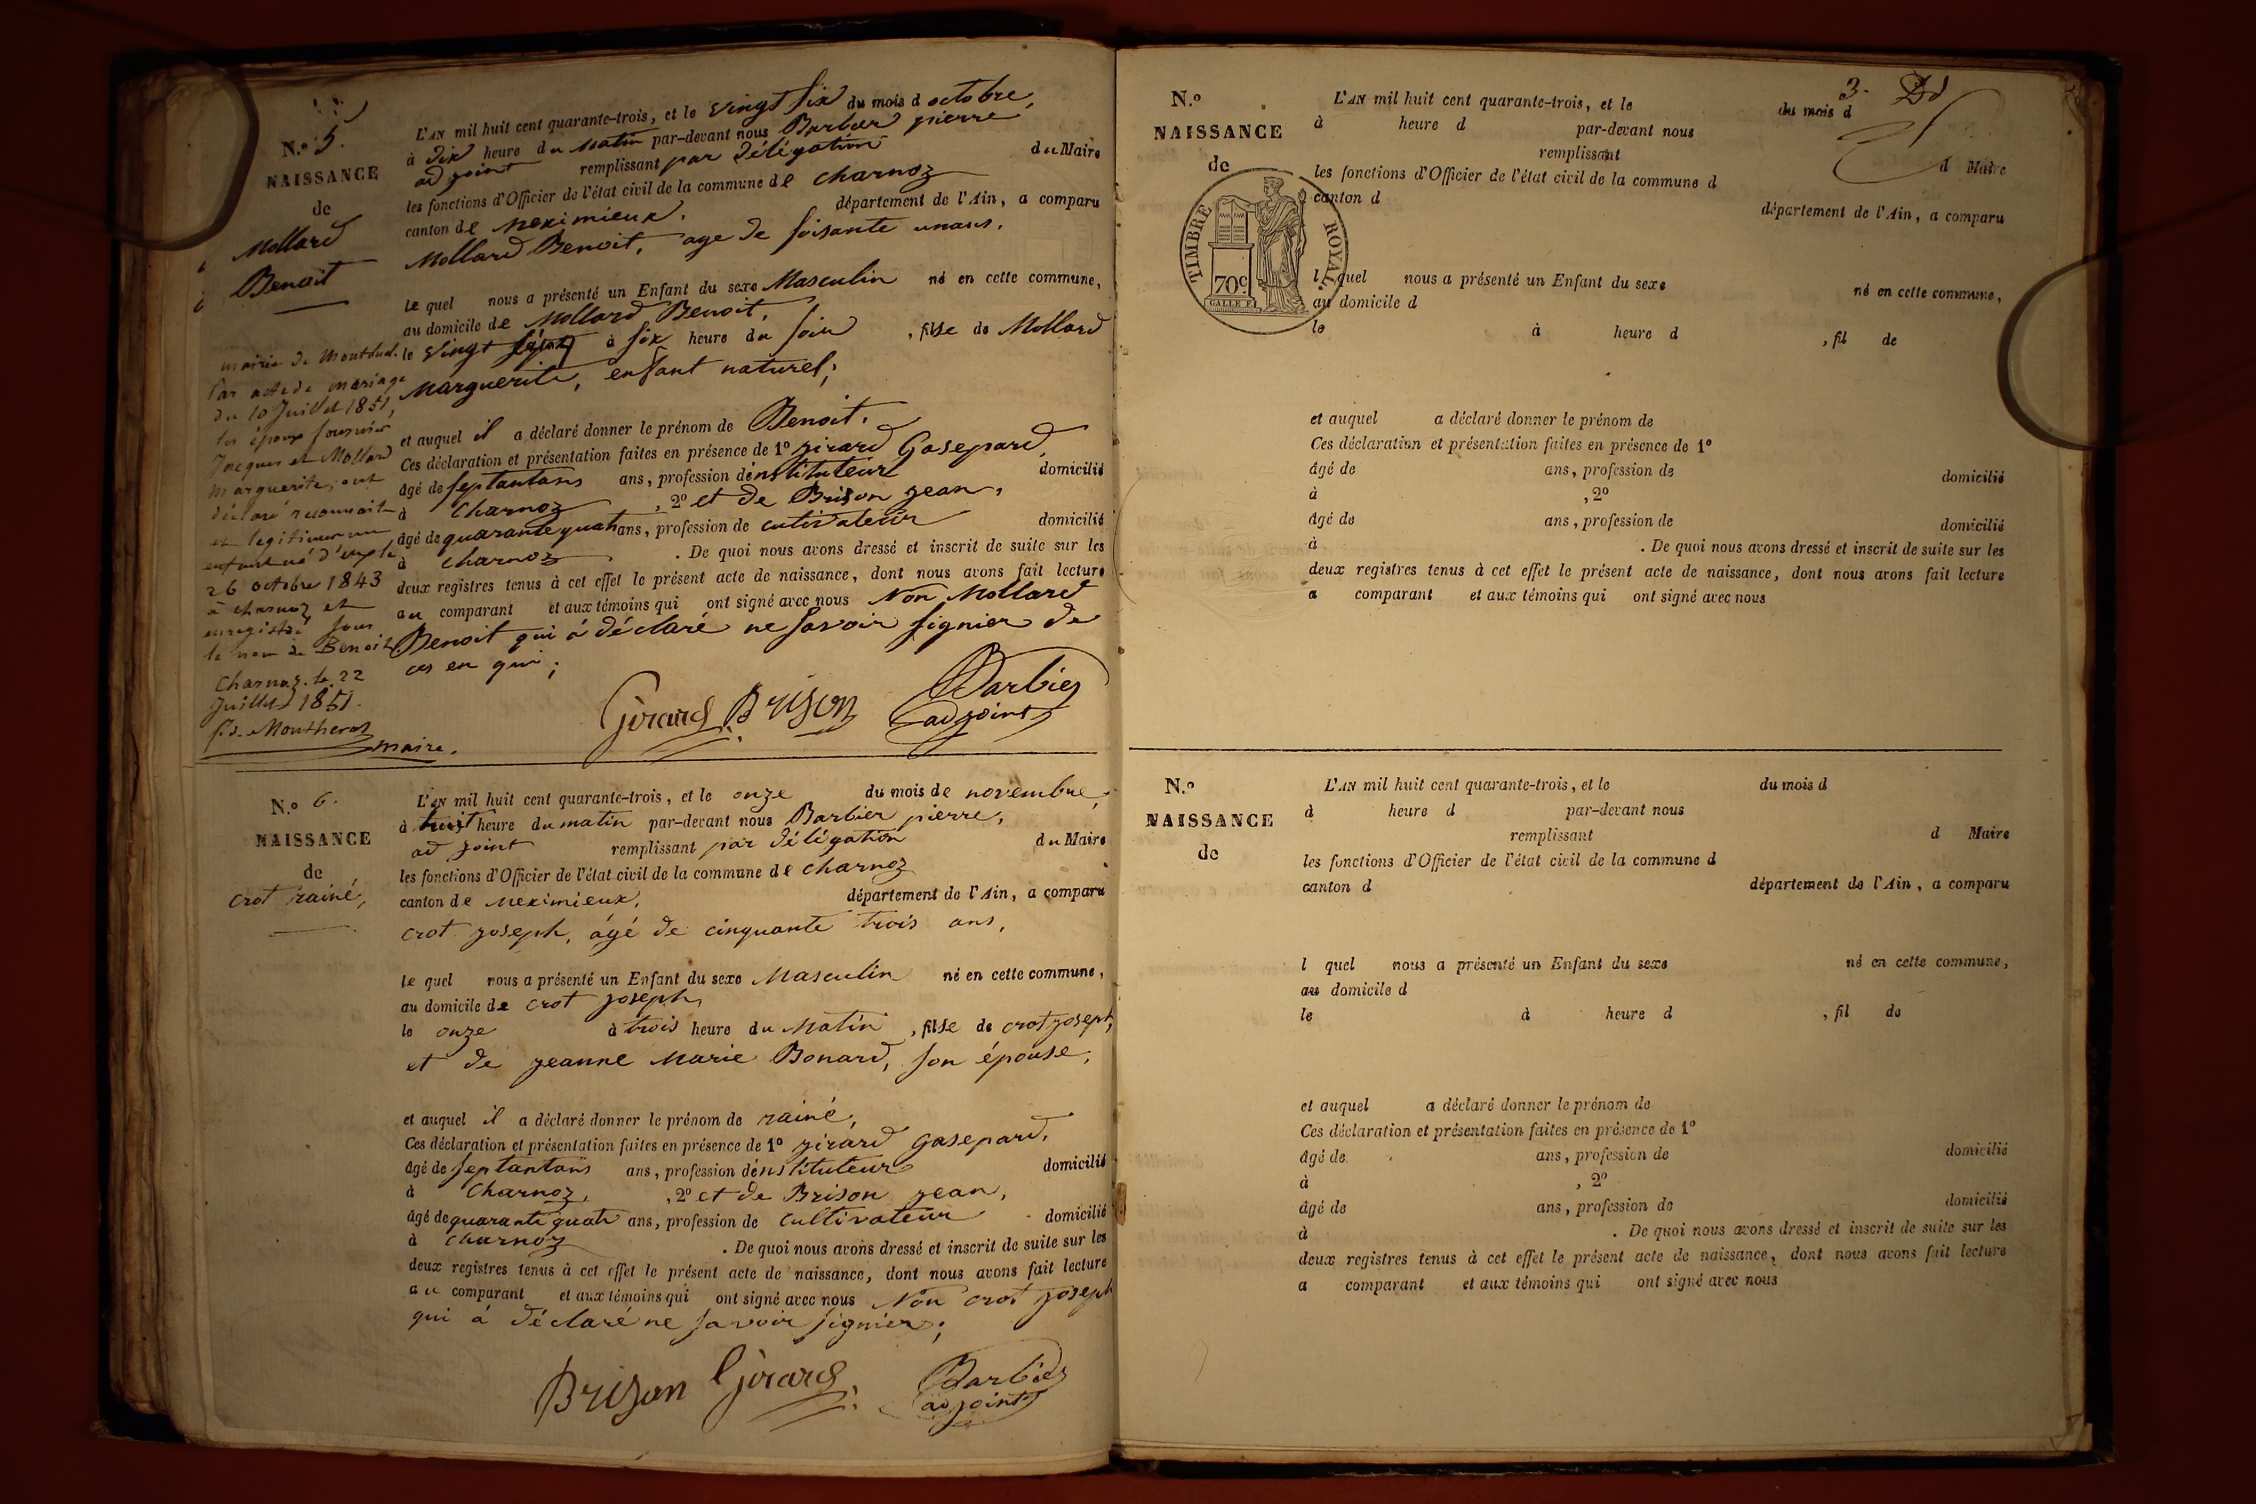 N.o 5.
NAISSANCE
de
Mollard
Benoit
L'AN mil huit cent quarante-trois, et le vingt six du mois d octobre,
à dix heure du matin par-devant nous Barbier pierre
ad joint remplissant par délégation du Maire
les fonctions d'Officier de l'état civil de la commune de charnoz
canton de meximieux. département de l'Ain, a comparu
Mollard Benoit, age de soisante unans,
le quel nous a présenté un Enfant du sexe Masculin né en cette commune,
au domicile de Mollard Benoit,
le vingt à six heure du soir , fils de Mollard
marguerite, enfant naturel;
et auquel il a déclaré donner le prénom de Benoit.
Ces déclaration et présentation faites en présence de 1o girard Gasepard,
âgé de septantans ans, profession d'instituteur domicilié
à Charnoz , 2o et de Brison jean,
âgé de quarante quatr ans, profession de cutivateur domicilié
à charnoz . De quoi nous avons dressé et inscrit de suite sur les
deux registres tenus à cet effet le présent acte de naissance, dont nous avons fait lecture
au comparant et aux témoins qui ont signé avec nous Non Mollard
Benoit qui á déclaré ne savoir signier de
ces en qui;
Girard Brison Barbier
adjoint
mairie de Montluel.
Par acte de mariage
du 10 Juillet 1851,
les époux fournier
Jacques et Mollard
marguerite, ont
déclaré reconnaitre
et legitimer un
enfant né d'eux le
26 octobre 1843
à charnoz et
enregistré sous
le nom de Benoit
Charnoz. le 22
Juillet 1851.
maire.
N.o 6.
NAISSANCE
de
crot rainé,
L'AN mil huit cent quarante-trois, et le onze du mois de novembre,
à heure du matin par-devant nous Barbier pierre,
ad joint remplissant par délégation du Maire
les fonctions d'Officier de l'état civil de la commune de charnoz
canton de meximieux, département de l'Ain, a comparu
crot joseph, ágé de cinquante trois ans,
le quel nous a présenté un Enfant du sexe Masculin né en cette commune,
au domicile de crot joseph,
le onze à trois heure du Matin , fils de crot joseph,
et de jeanne Marie Bonard, son épouse,
et auquel il a déclaré donner le prénom de rainé,
Ces déclaration et présentation faites en présence de 1o girard gasepard,
âgé de septantans ans, profession d'instituteur domicilié
à Charnoz, , 2o et de Brison jean,
âgé de quarante quatr ans, profession de cultivateur domicilié
à charnoz . De quoi nous avons dressé et inscrit de suite sur les
deux registres tenus à cet effet le présent acte de naissance, dont nous avons fait lecture
au comparant et aux témoins qui ont signé avec nous Non crot joseph
qui á déclaré ne savoir signier;
Brison Girard Barbier
adjoint
3.
N.o
NAISSANCE
de
TIMBRE ROYAL.
70c
L'AN mil huit cent quarante-trois, et le du mois d
à heure d par-devant nous
remplissant d Maire
les fonctions d'Officier de l'état civil de la commune d
canton d département de l'Ain, a comparu
l quel nous a présenté un Enfant du sexe né en cette commune,
au domicile d
le à heure d , fil de
et auquel a déclaré donner le prénom de
Ces déclaration et présentation faites en présence de 1o
âgé de ans, profession de domicilié
à , 2o
âgé de ans, profession de domicilié
à . De quoi nous avons dressé et inscrit de suite sur les
deux registres tenus à cet effet le présent acte de naissance, dont nous avons fait lecture
a comparant et aux témoins qui ont signé avec nous
N.o
NAISSANCE
de
L'AN mil huit cent quarante-trois, et le du mois d
à heure d par-devant nous
remplissant d Maire
les fonctions d'Officier de l'état civil de la commune d
canton d département de l'Ain, a comparu
l quel nous a présenté un Enfant du sexe né en cette commune,
au domicile d
le à heure d , fil de
et auquel a déclaré donner le prénom de
Ces déclaration et présentation faites en présence de 1o
âgé de ans, profession de domicilié
à , 2o
âgé de ans, profession de domicilié
à . De quoi nous avons dressé et inscrit de suite sur les
deux registres tenus à cet effet le présent acte de naissance, dont nous avons fait lecture
a comparant et aux témoins qui ont signé avec nous